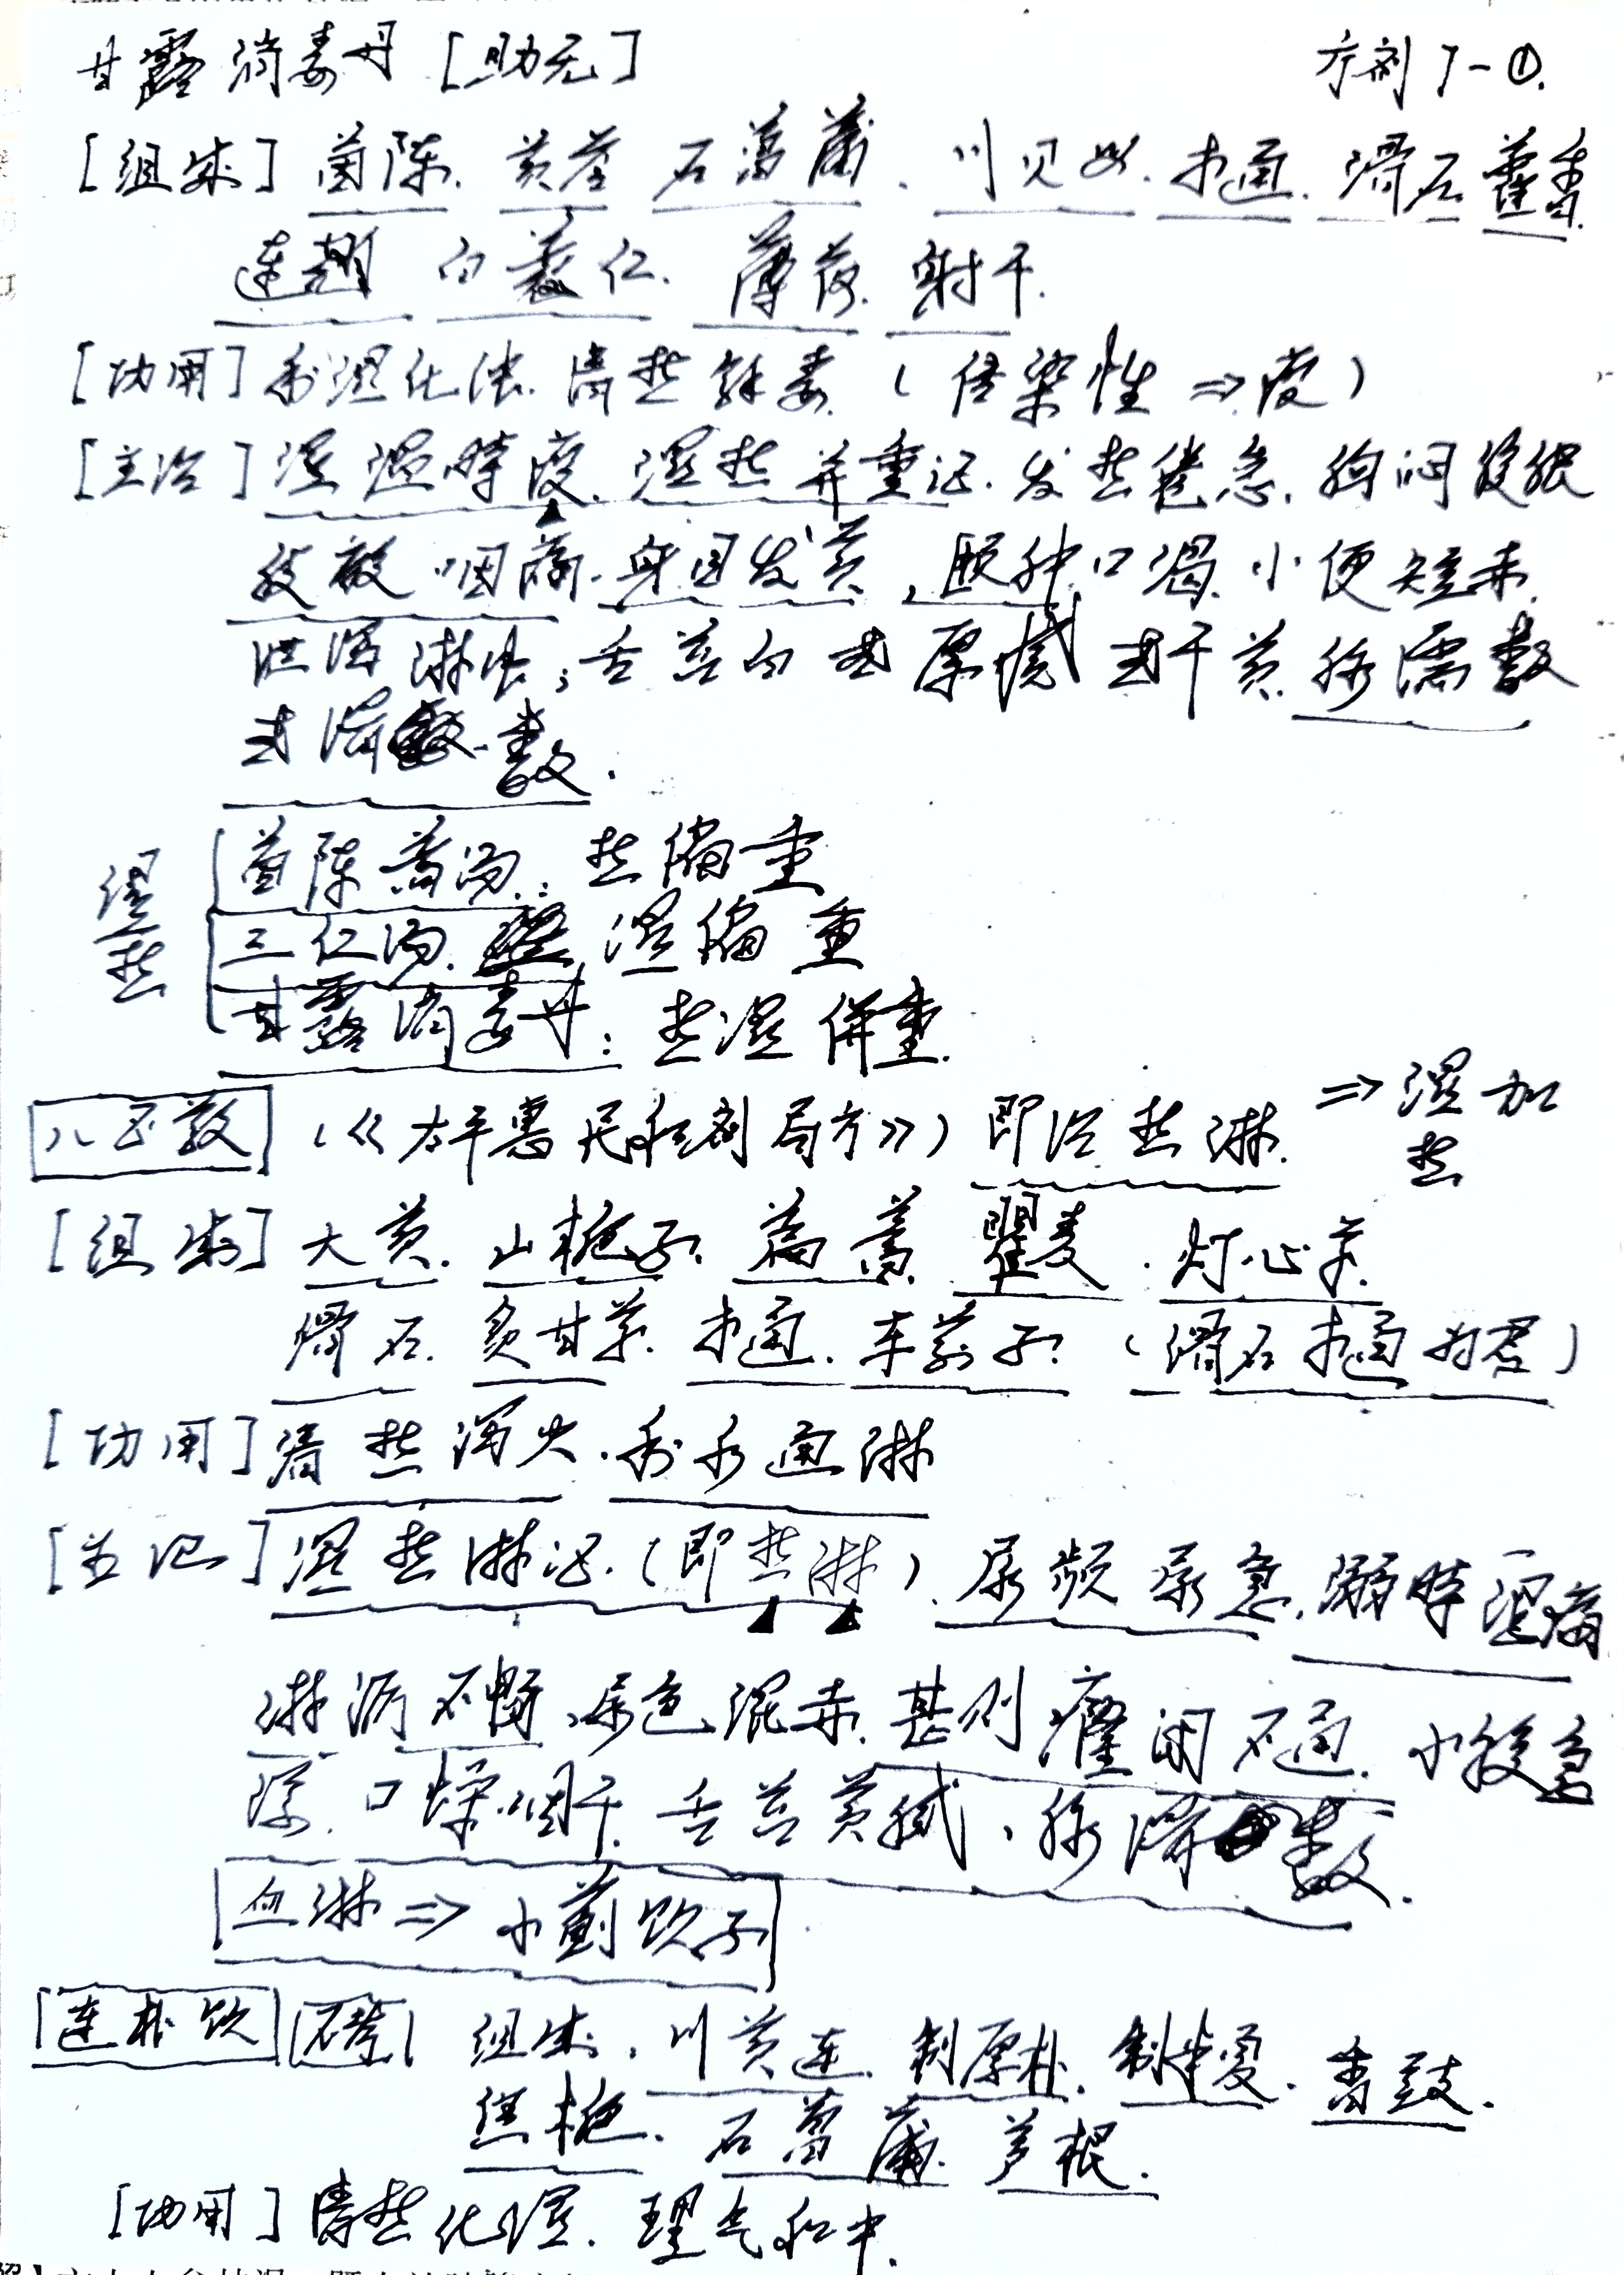 甘露消毒丹 [助无] 方剂 7-①.
[组成] 茵陈. 黄芩 石菖蒲. 川贝母. 木通. 滑石 藿香.
连翘 白蔻仁. 薄荷. 射干.
[功用] 利湿化浊. 清热解毒. (传染性 ⇒ 疫)
[主治] 湿温时疫. 湿热并重证. 发热倦怠. 胸闷腹胀
肢酸 咽痛. 身目发黄, 颐肿口渴. 小便短赤.
泄泻淋浊; 舌苔白或厚腻或干黄. 脉濡数
或滑数.
湿热
茵陈蒿汤: 热偏重
三仁汤. 湿偏重
甘露消毒丹: 热湿併重.
八正散 (《太平惠民和剂局方》) 即治热淋. ⇒ 湿加热
[组成] 大黄. 山栀子. 萹蓄. 瞿麦. 灯心草.
滑石. 炙甘草. 木通. 车前子. (滑石木通为君)
[功用] 清热泻火. 利水通淋
[主治] 湿热淋证. (即热淋). 尿频尿急. 溺时涩痛
淋沥不畅, 尿色混赤. 甚则癃闭不通. 小腹急
满. 口燥咽干. 舌苔黄腻, 脉滑数.
血淋 ⇒ 小蓟饮子
连朴饮 不考 组成, 川黄连. 制厚朴. 制半夏. 香豉.
焦栀. 石菖蒲. 芦根.
[功用] 清热化湿. 理气和中.